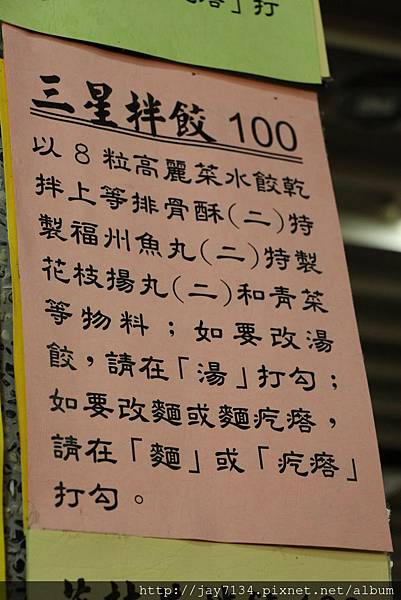 疙瘩」打
三星拌餃 100
以8粒高麗菜水餃乾
拌上等排骨酥(二)特
製福州魚丸(二)特製
花枝揚丸(二)和青菜
等物料；如要改湯
餃，請在「湯」打勾；
如要改麵或麵疙瘩，
請在「麵」或「疙瘩」
打勾。
http://jay7134.pixnet.net/album